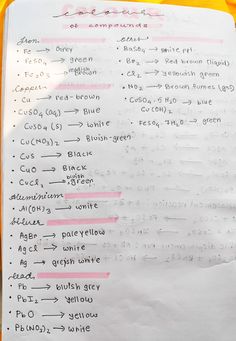 colours
of compounds
Iron
• Fe → Grey
• FeSO4 → green
• Fe2O3 → reddish brown
Copper
• Cu → red-brown
• CuSO4 (aq) → Blue
CuSO4 (s) → white
• Cu(NO3)2 → Bluish-green
• CuS → Black
• CuO → Black
• CuCl2 → bluish green
aluminium
• Al(OH)3 → white
Silver
• AgBr → pale yellow
• AgCl → white
• Ag → greyish white
lead
• Pb → bluish grey
• PbI2 → Yellow
• PbO → yellow
• Pb(NO3)2 → white
others
• BaSO4 → white ppt.
• Br2 → Red brown (liquid)
• Cl2 → Yellowish green
• NO2 → Brown fumes (gas)
• CuSO4.5H2O → blue
Cu(OH)2
• FeSO4.7H2O → green